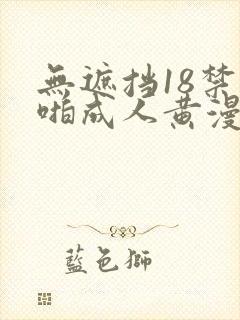 無遮挡18禁啪
啪成人黄漫
藍色獅